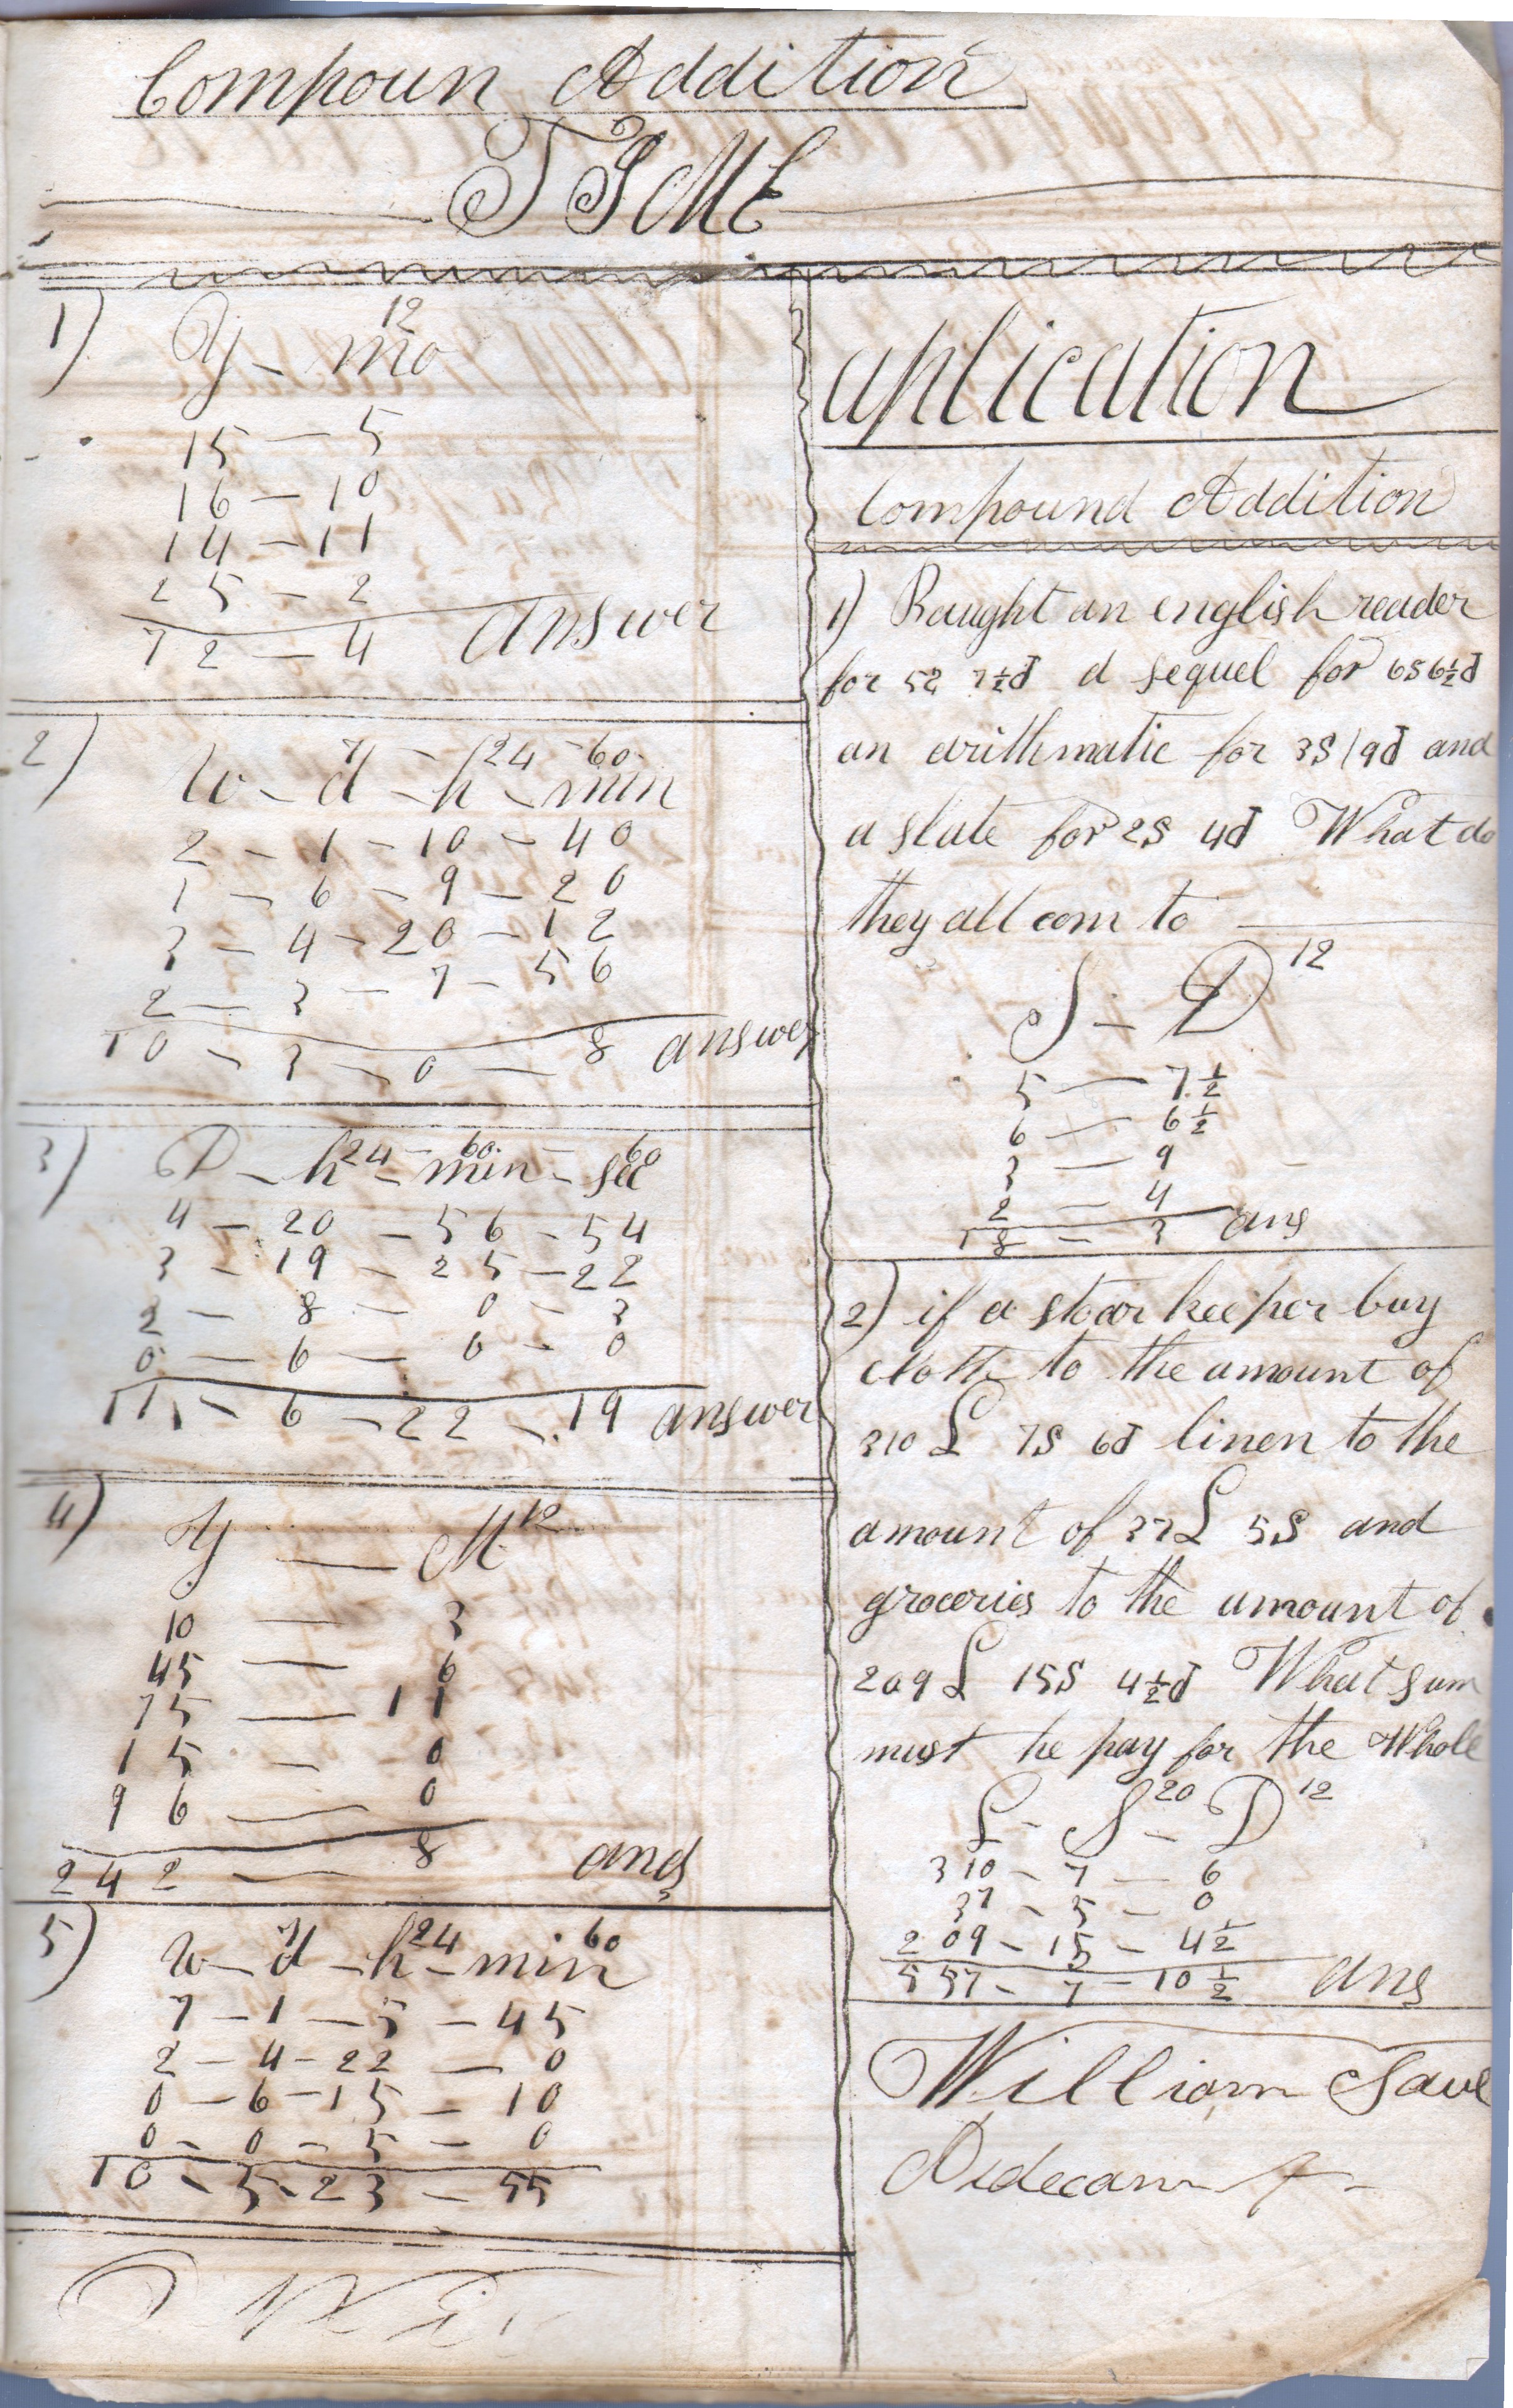 Compoun Addition
TIME
1)
12
Y - mo
15 - 5
16 - 10
14 - 11
25 - 2
72 - 4 answer
2)
7 - 24 - 60
w - d - h - min
2 - 1 - 10 - 40
1 - 6 - 9 - 20
3 - 4 - 20 - 12
2 - 3 - 7 - 56
10 - 3 - 0 - 8 answer
3)
24 - 60 - 60
D - h - min - sec
4 - 20 - 56 - 54
3 - 19 - 25 - 22
2 - 8 - 0 - 3
0 - 6 - 0 - 0
11 - 6 - 22 - 19 answer
4)
Y - M 12
10 - 3
45 - 6
75 - 11
15 - 0
96 - 0
242 - 8 ans
5)
7 24 60
w - d - h - min
7 - 1 - 5 - 45
2 - 4 - 22 - 0
0 - 6 - 15 - 10
0 - 0 - 5 - 0
10 - 5 - 23 - 55
aplication
Compound Addition
1) Baught an english reader
for 5S 7½d a sequel for 6S 6½d
an arithmatic for 3S / 9d and
a slate for 2S 4d What do
they all com to
S - D 12
5 - 7½
6 - 6½
3 - 9
2 - 4
18 - 3 ans
2) if a stoar keeper buy
cloth to the amount of
310 £ 7S 6d linen to the
amount of 37£ 5S and
groceries to the amount of
209£ 15S 4½d What sum
must he pay for the Whole
£ - S 20 - D 12
310 - 7 - 6
37 - 5 - 0
209 - 15 - 4½
557 - 7 - 10½ ans
William Saul